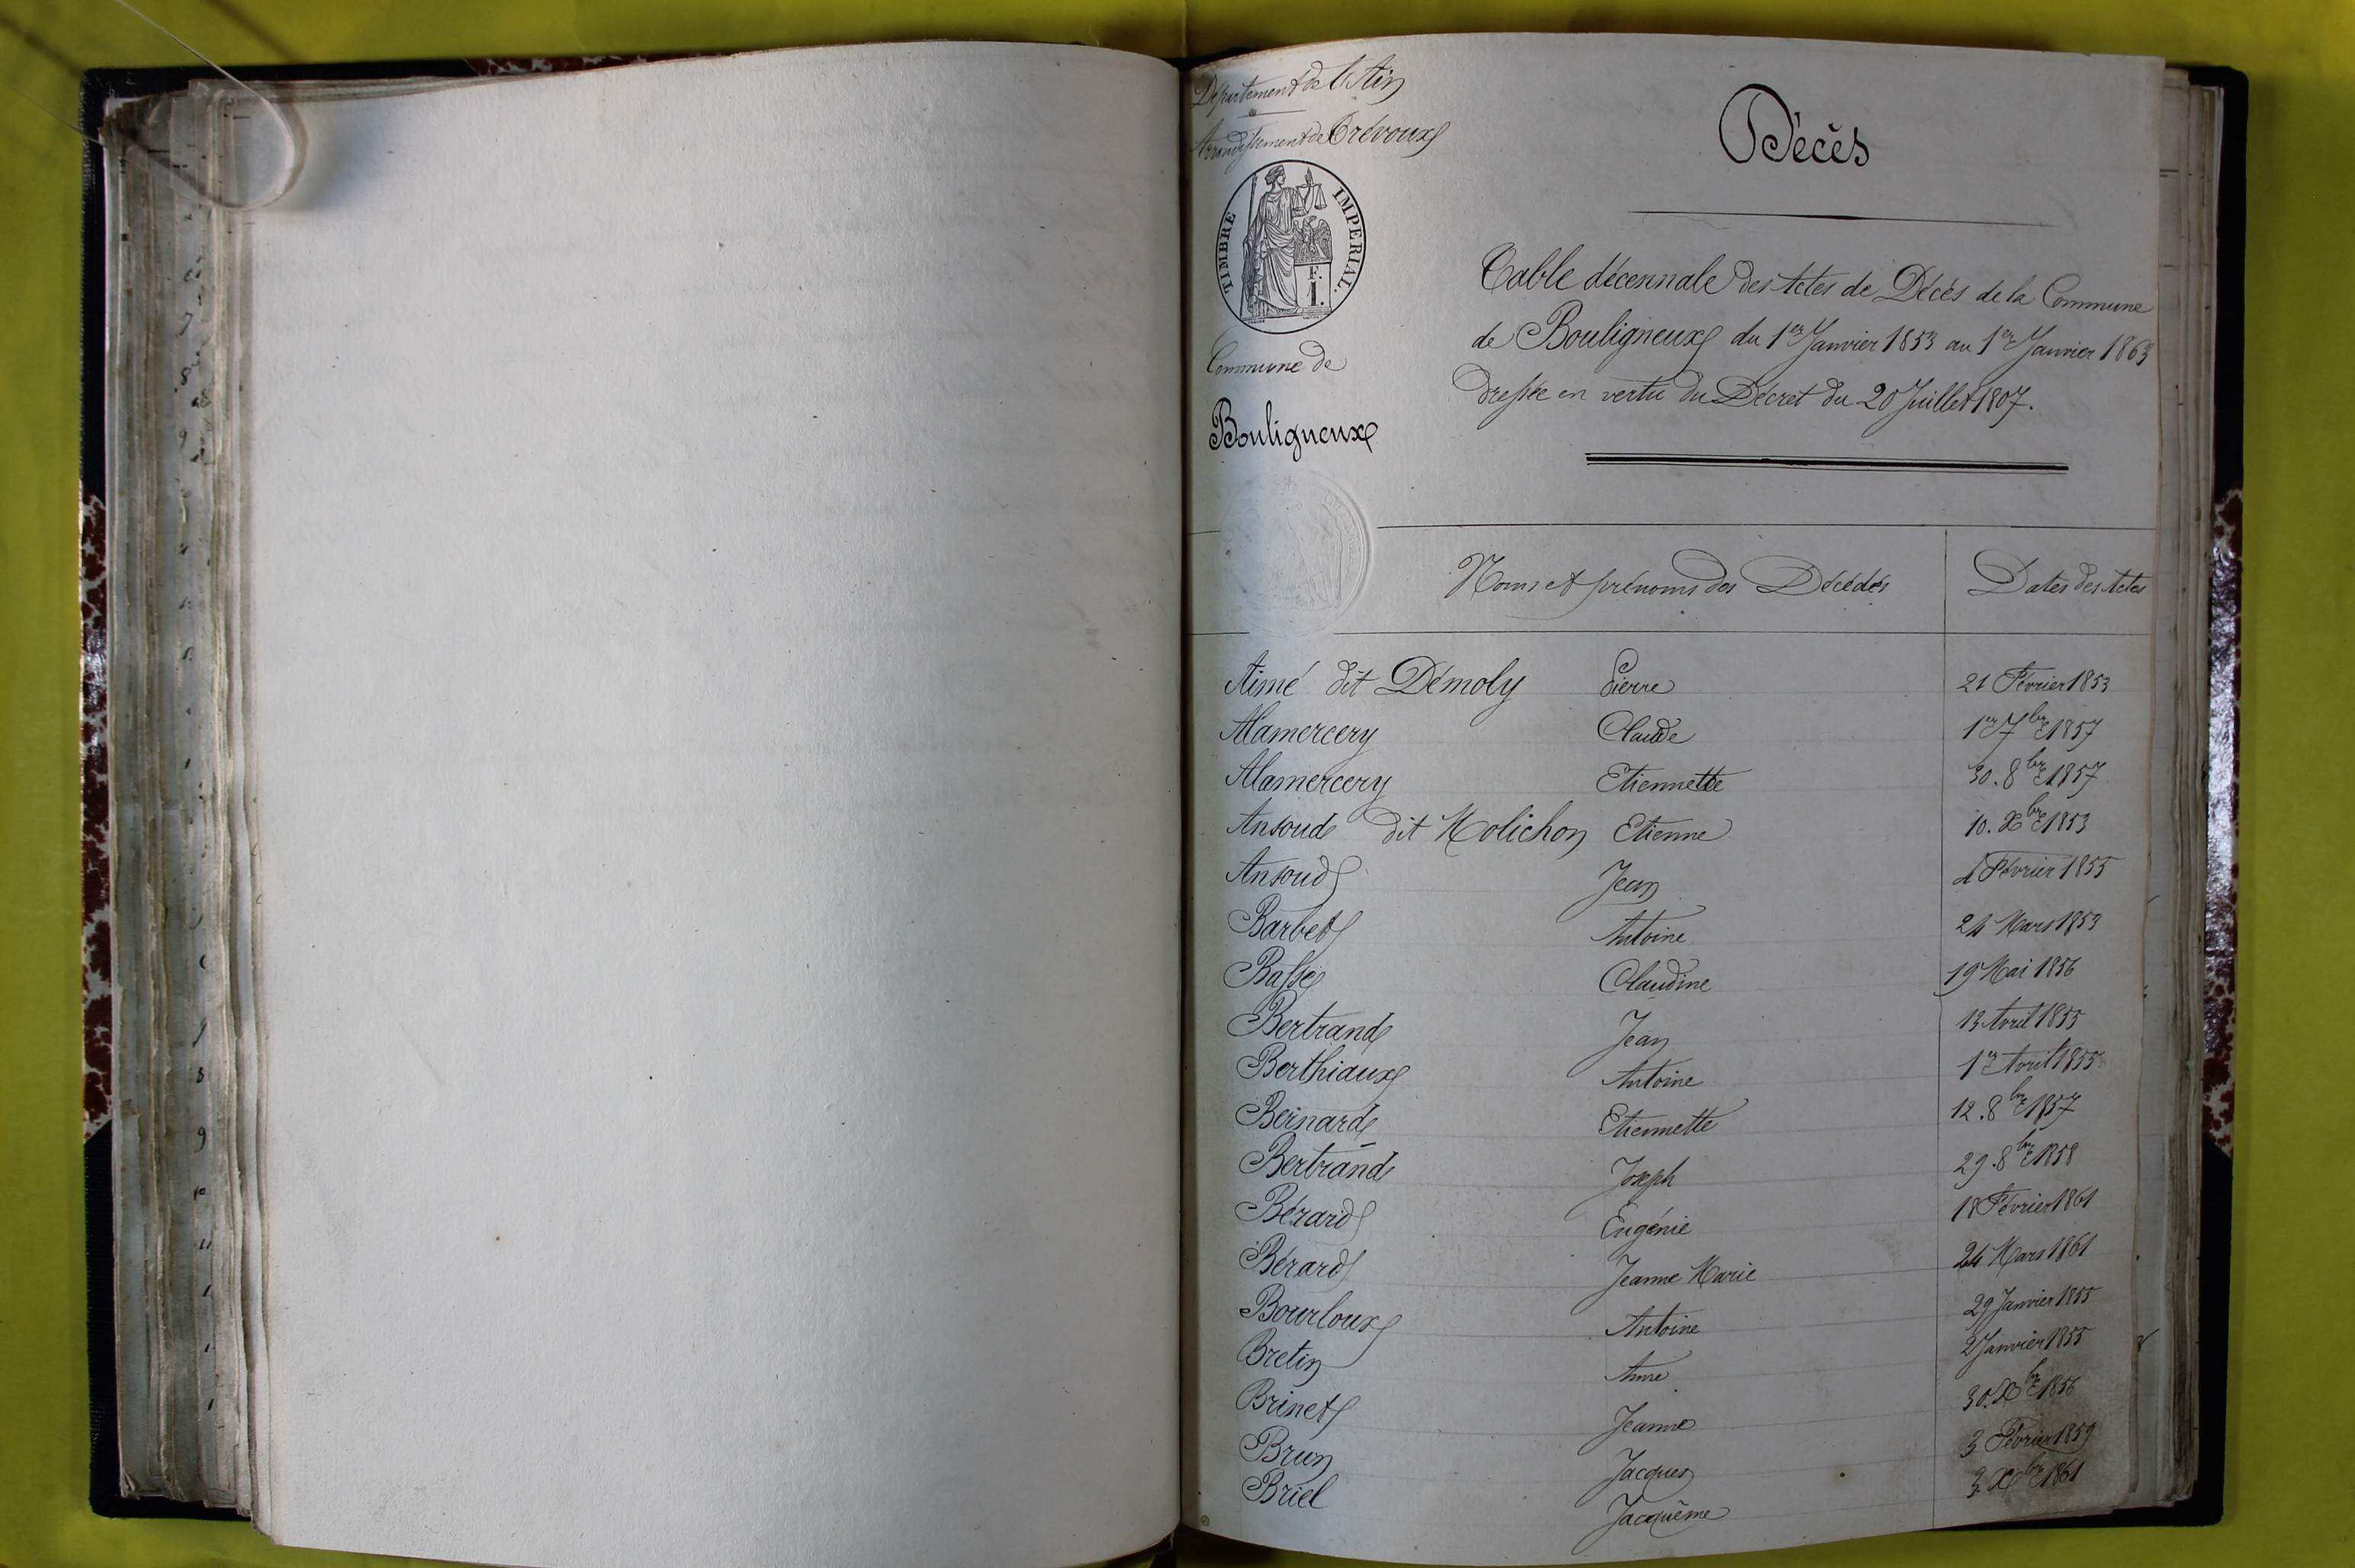 Département de l'Ain
Arrondissement de Trévoux
TIMBRE IMPERIAL.
F.
1.
Commune de
Bouligneux
Décès
Table décennale des Actes de Décès de la Commune
de Bouligneux du 1er Janvier 1853 au 1er Janvier 1863
dressée en vertu du Décret du 20 Juillet 1807.
Noms et prénoms des Décédés Dates des Actes
Aimé dit Démoly Pierre 21 Février 1853
Alamercery Claude 1er 7bre 1857
Alamercery Etiennette 30. 8bre 1857
Ansoud dit Molichon Etienne 10. Xbre 1853
Ansoud Jean 4 Février 1855
Barbet Antoine 24 Mars 1853
Bassé Claudine 19 Mai 1856
Bertrand Jean 13 Avril 1855
Berthiaux Antoine 1er Avril 1855
Bernard Etiennette 12. 8bre 1857
Bertrand Joseph 29. 8bre 1858
Bérard Eugénie 18 Février 1861
Bérard Jeanne Marie 24 Mars 1861
Bourloux Antoine 29 Janvier 1855
Bretin Anne 2 Janvier 1855
Brinet Jeanne 30. Xbre 1856
Brun Jacques 3 Février 1859
Briel Jacquême 3. Xbre 1861
6
7
8
9
8
9
10
11